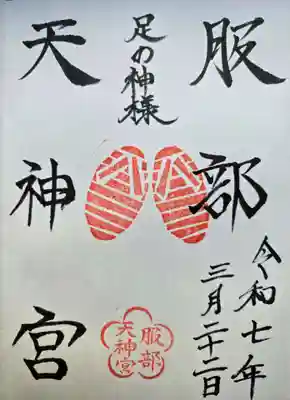 服部
天神宮
足の神様
令和七年
三月二十二日
服部
天神宮